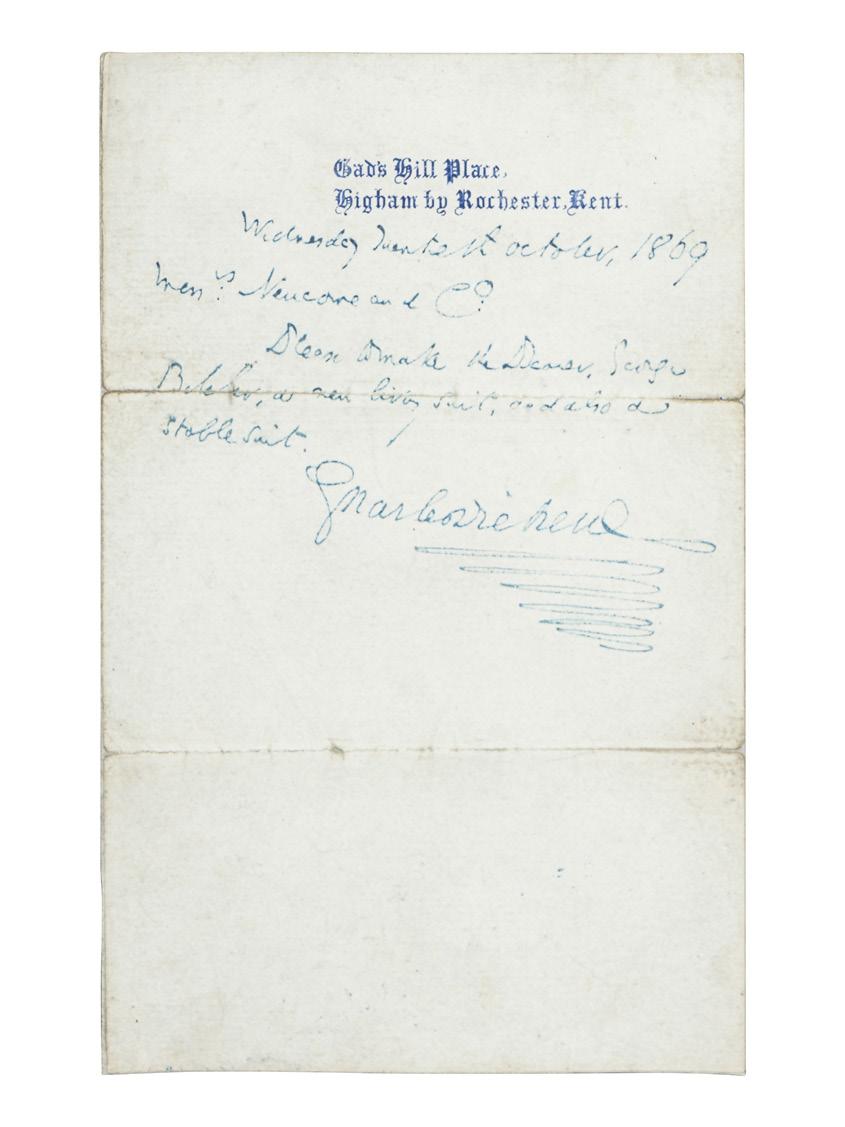 Gad's Hill Place,
Higham by Rochester, Kent.
Wednesday Twentieth October, 1869
Mess.rs Newcome and Co.
Please to make the Bearer, George
Belcher, a new livery suit, and also a
stable suit.
Charles Dickens